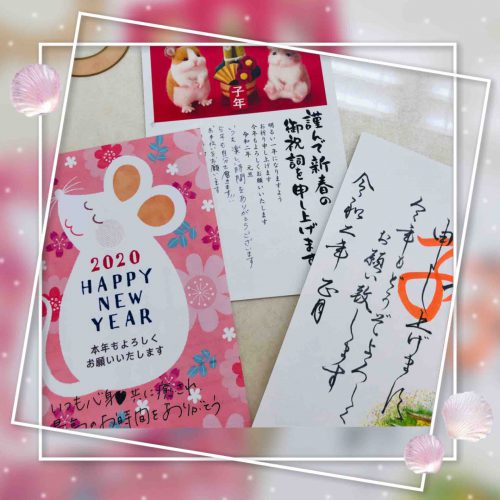 子年
謹んで新春の
御祝詞を申し上げます
明るい一年になりますよう
お祈り申し上げます
今年もよろしくお願いいたします
令和二年 元旦
いつも楽しい時間をありがとうございます
2020
HAPPY
NEW
YEAR
本年もよろしく
お願いいたします
いつも心身♥共に癒され
お時間をありがとう
申し上げます
今年もどうぞよろしく
お願い致します
令和二年 正月